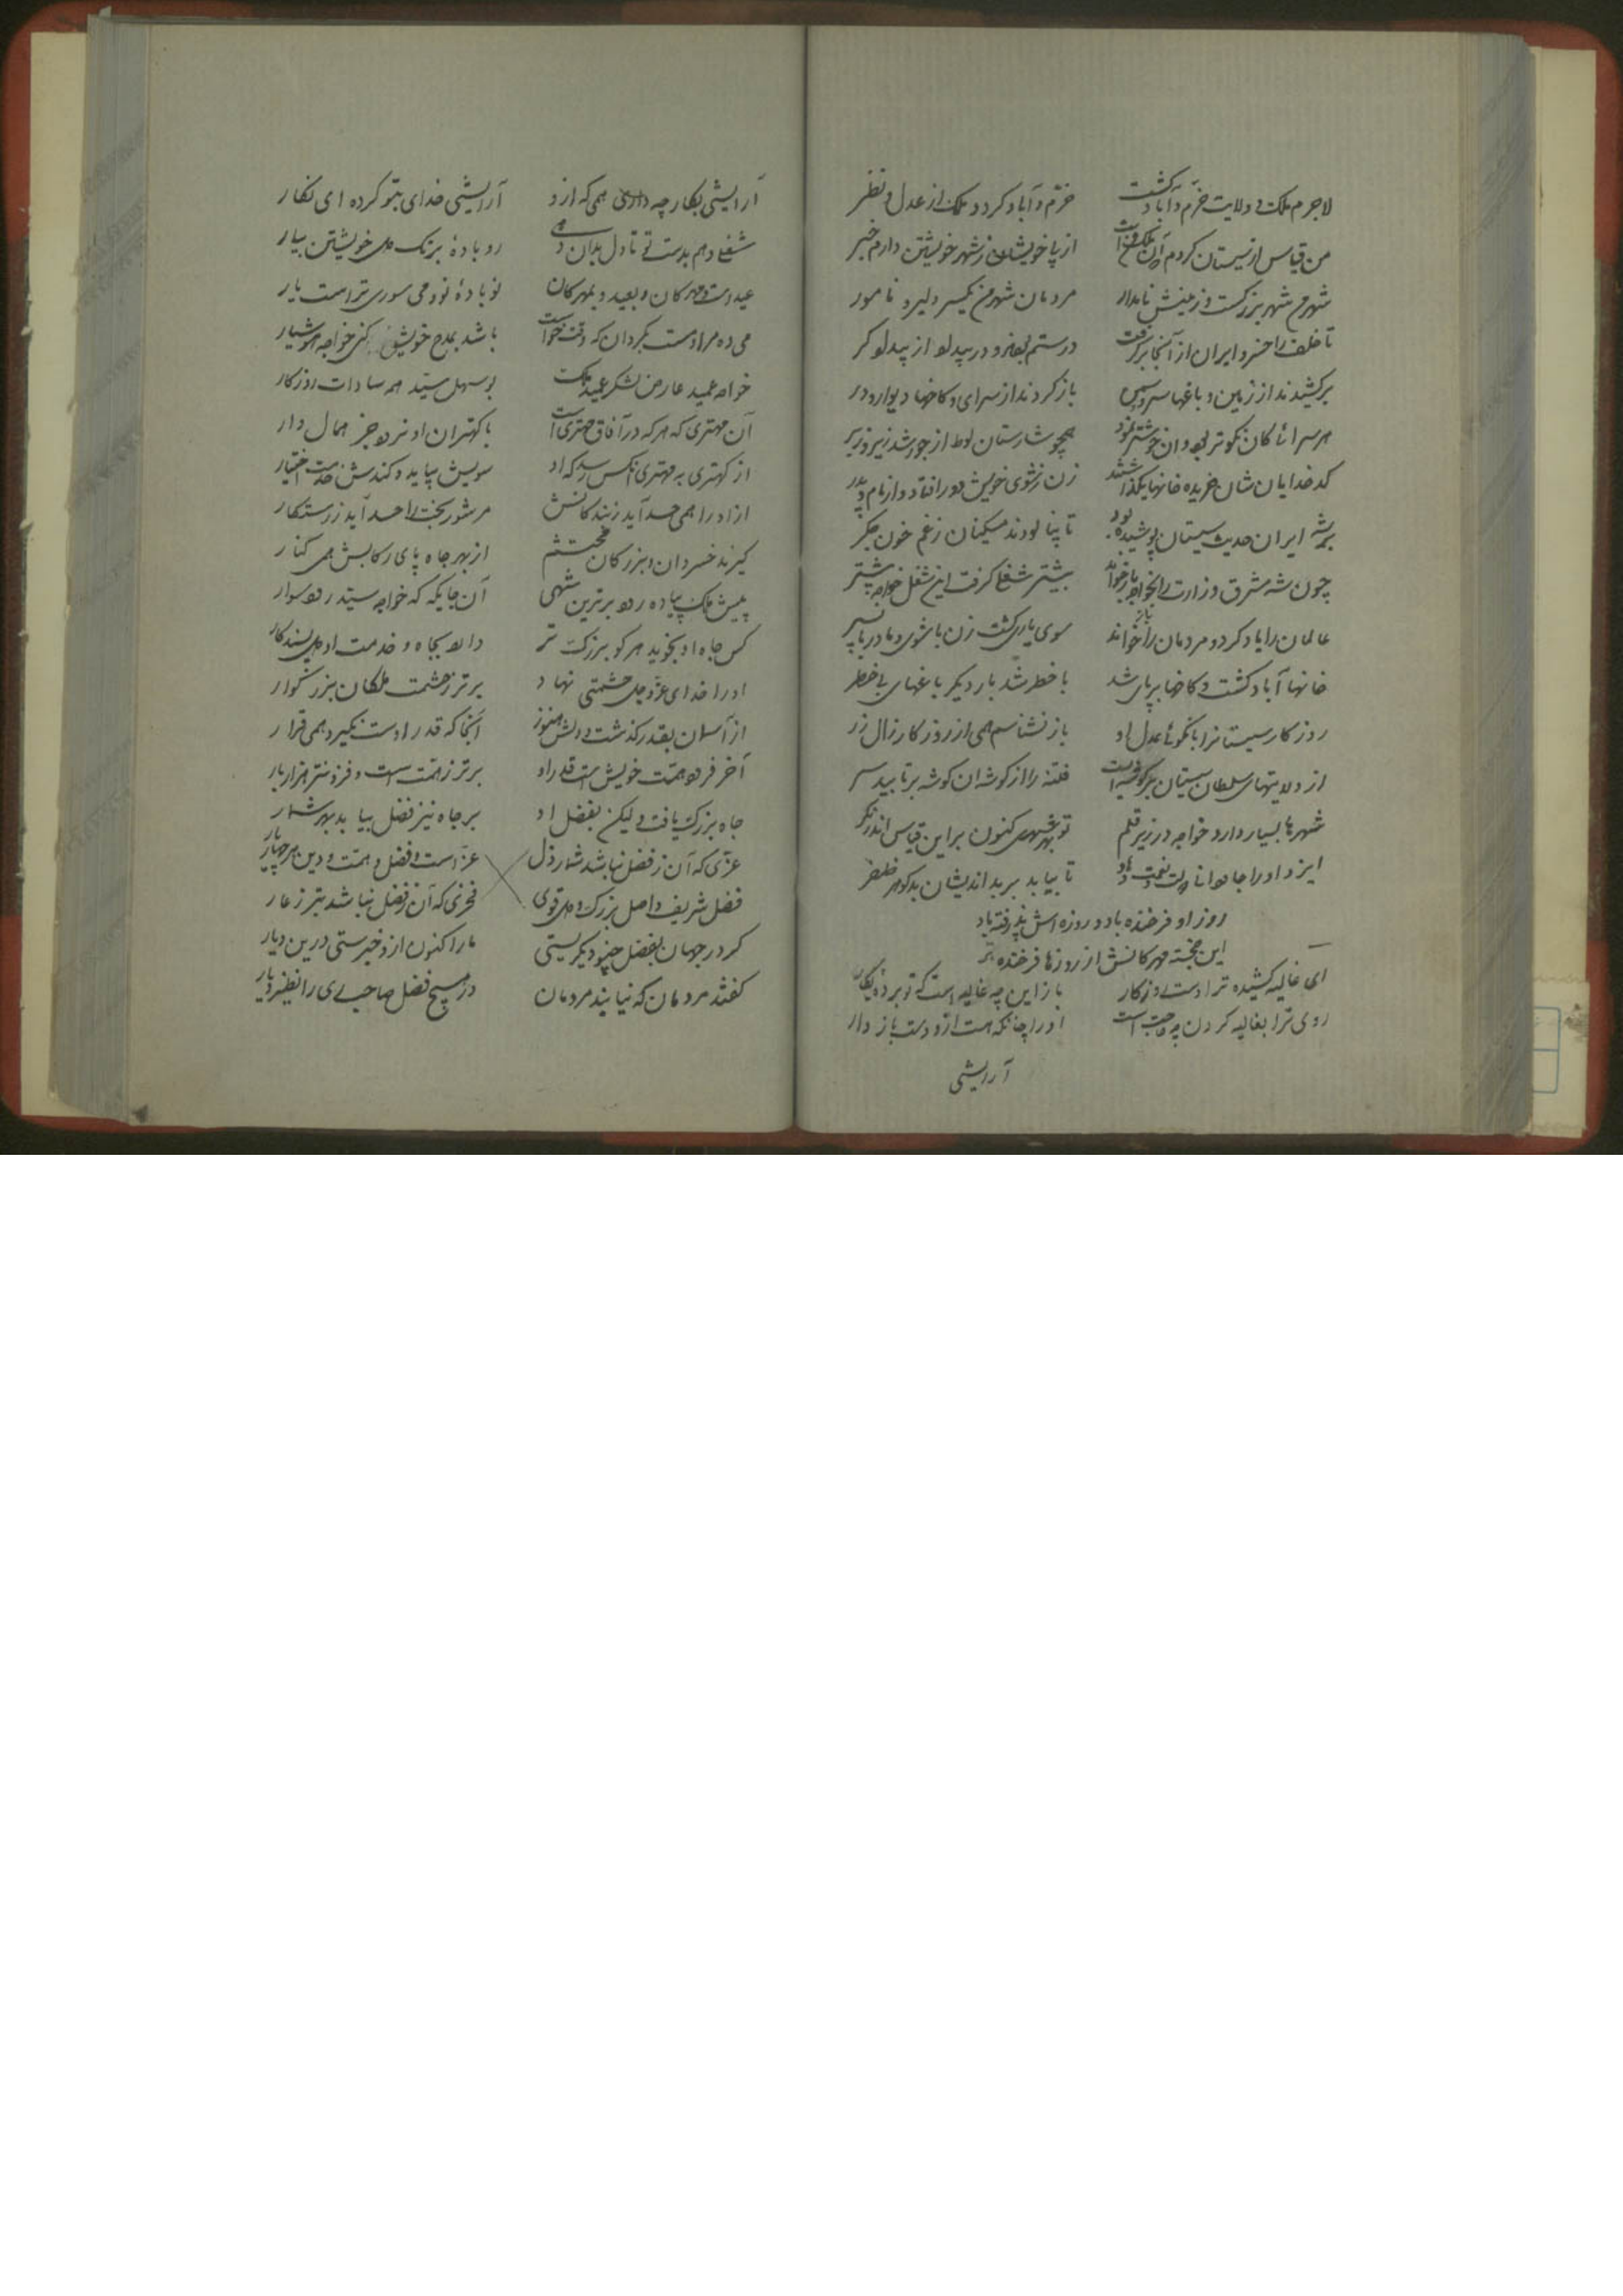 لاجرم ملکت و ولایت خرم و آباد گشت خرم و آباد گردد ملک از عدل و نظر
من قیاس از سیستان کردم از پی خویشان ز شهر خویشتن دارم خبر
شهر من شهر بزرگست و زمینش نامدار مردمان شهر من یکسر دلیر و نامور
تا خلف را خسرو ایران از آنجا برگرفت درستم بودند
برکشیدند از زمین و باغها سرو سهی بازکردند از سرای و کاخها دیوار و در
هر سرائی کان نکوتر بود و آن خوشتر نمود همچو شارستان لوط از جور شد زیر و زبر
کدخدایان شان خریده خانها بگذاشتند زن ز شوی خویش دور افتاد و از مام و پدر
بر شه ایران حدیث سیستان پوشیده بود بودند مسکینان ز غم خون جگر
چون شه مشرق وزارت را بخواجه باز خواند بیشتر شغلی گرفت این شغل خواجه پیشتر
عاملان را یاد کرد و مردمان را باز خواند سوی یاری گشت زن با شوی و مادر با پسر
خانها آباد گشت و کاخها برپای شد با خطر شد بار دیگر باغهای بی خطر
روزگار سیستان را با نکوئی عدل او باز نشناسم همی از روزگار زال زر
از ولایتهای سلطان سیستان یک گوشه است فتنه را از گوشه آن گوشه برتابید سر
شهرها بسیار دارد خواجه در زیر قلم تو بهر شهری کنون بر این قیاس اندر نگر
ایزد او را جاودانه دولت و نعمت دهاد تا بیابد بر بداندیشان بدگوهر ظفر
روز او فرخنده باد و روزه اش پذرفته باد
این خجسته مهرگانش از روزها فرخنده تر
ای غالیه کشیده ترا دست روزگار باز این چه غالیه است که تو برده بکار
روی ترا بغالیه کردن چه حاجت است او را چنانکه هست ازو دست باز دار
آرایشی
آرایشی بکار چه داری همی که ازو آرایشی خدای بتو کرده ای نگار
شغلی دهم بدست تو تا دل بدان دهی رو باده برنگ می خویشتن بیار
عید است و مهرگان و بعید و بمهرگان نوباده بود می سوری ترا ست یار
می ده مرا و مست بگردان که وقت خواست باشد بمدح خویش کنی خواجه هوشیار
خواجه عمید عارض لشکر عمید ملک بوسهل سید همه سادات روزگار
آن مهتری که هر که در آفاق مهتری است با کهتران او نرود جز همال وار
از کهتری به مهتری آنکس رسد که او سویش بیاید و کندش خدمت اختیار
از او را همی حسد آید ز بندگانش هر شوربخت را حسد آید ز رستگار
گیرند خسروان و بزرگان محتشم از بهر جاه پای رکابش همی کنار
پیش ملک پیاده رود برترین شهی آن جایگه که خواجه سید رود سوار
کس جاه او نجوید هر کو بزرگ تر داند بجاه و خدمت او بسنده کار
او را خدای عز و جل حشمتی نهاد برتر ز حشمت ملکان بزرگوار
از آسمان بقدر گذشت و دلش هنوز آنجا که قدر اوست نگیرد همی قرار
آخر فرود همت خویش است قدر او برتر ز همت است و فزونتر هزار بار
جاه بزرگ یافت و لیکن بفضل او بر جاه نیز فضل بیابد بهر شمار
عزی که آن ز فضل نباشد شمار ذل عز است و فضل و همت و دین هر چهار یار
فضل شریف و اصل بزرگ و دل قوی فخری که آن ز فضل نباشد بتر ز عار
گر در جهان بفضل چنو دیگرستی ما را کنون ازو خبرستی درین دیار
گفتند مردمان که نیابند مردمان در هیچ فضل صاحب ری را نظیر و یار